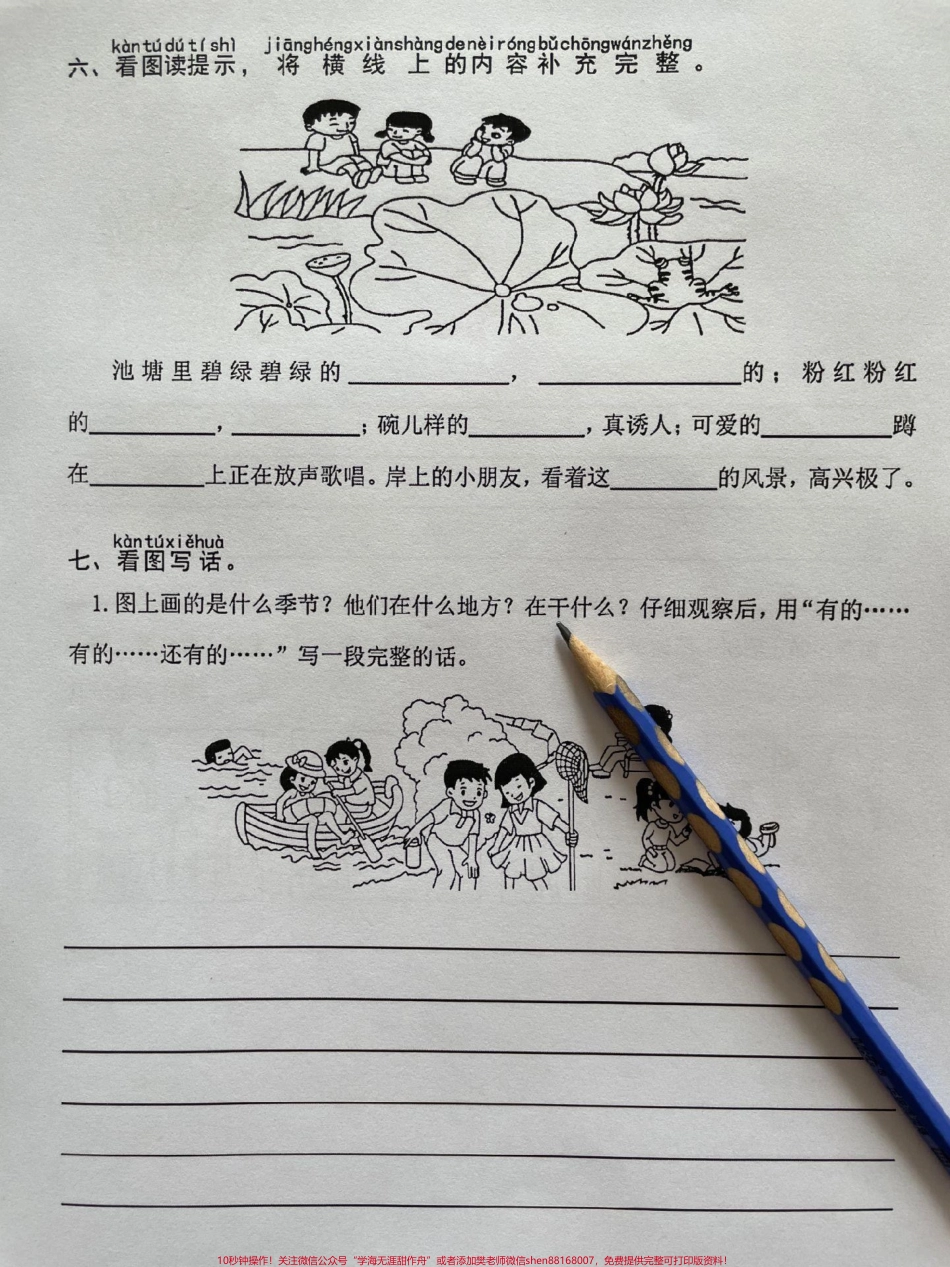 kàn tú dú tí shì jiāng héng xiàn shàng de nèi róng bǔ chōng wán zhěng
六、看图读提示，将横线上的内容补充完整。
池塘里碧绿碧绿的____________，________________的；粉红粉红
的__________，__________；碗儿样的_________，真诱人；可爱的__________蹲
在_________上正在放声歌唱。岸上的小朋友，看着这________的风景，高兴极了。
kàn tú xiě huà
七、看图写话。
1.图上画的是什么季节？他们在什么地方？在干什么？仔细观察后，用“有的……
有的……还有的……”写一段完整的话。
10秒钟操作！关注微信公众号“学海无涯甜作舟”或者添加樊老师微信shen88168007，免费提供完整可打印版资料！